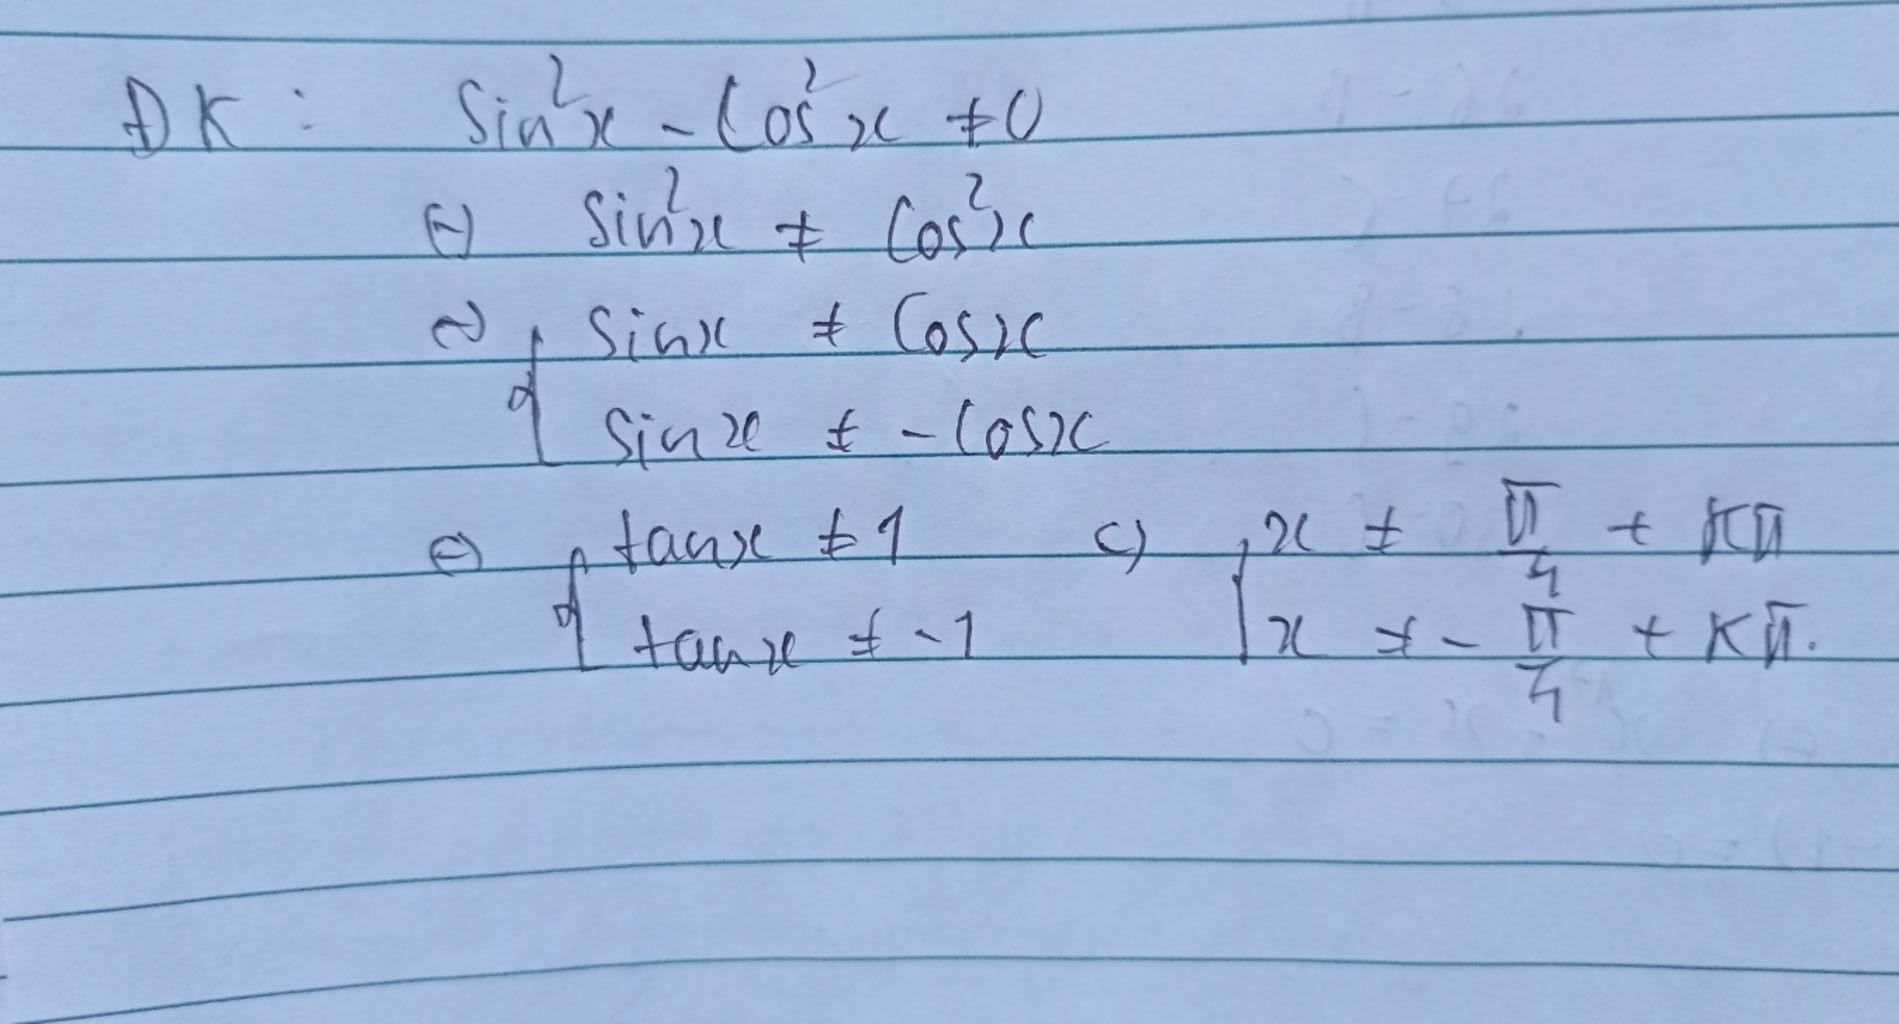 ĐK : Sin²x - Cos²x ≠ 0
⇔ Sin²x ≠ Cos²x
⇔ { Sinx ≠ Cosx
Sinx ≠ - Cosx
⇔ { tanx ≠ 1 ⇔ { x ≠ π/4 + Kπ
tanx ≠ -1 x ≠ - π/4 + Kπ.